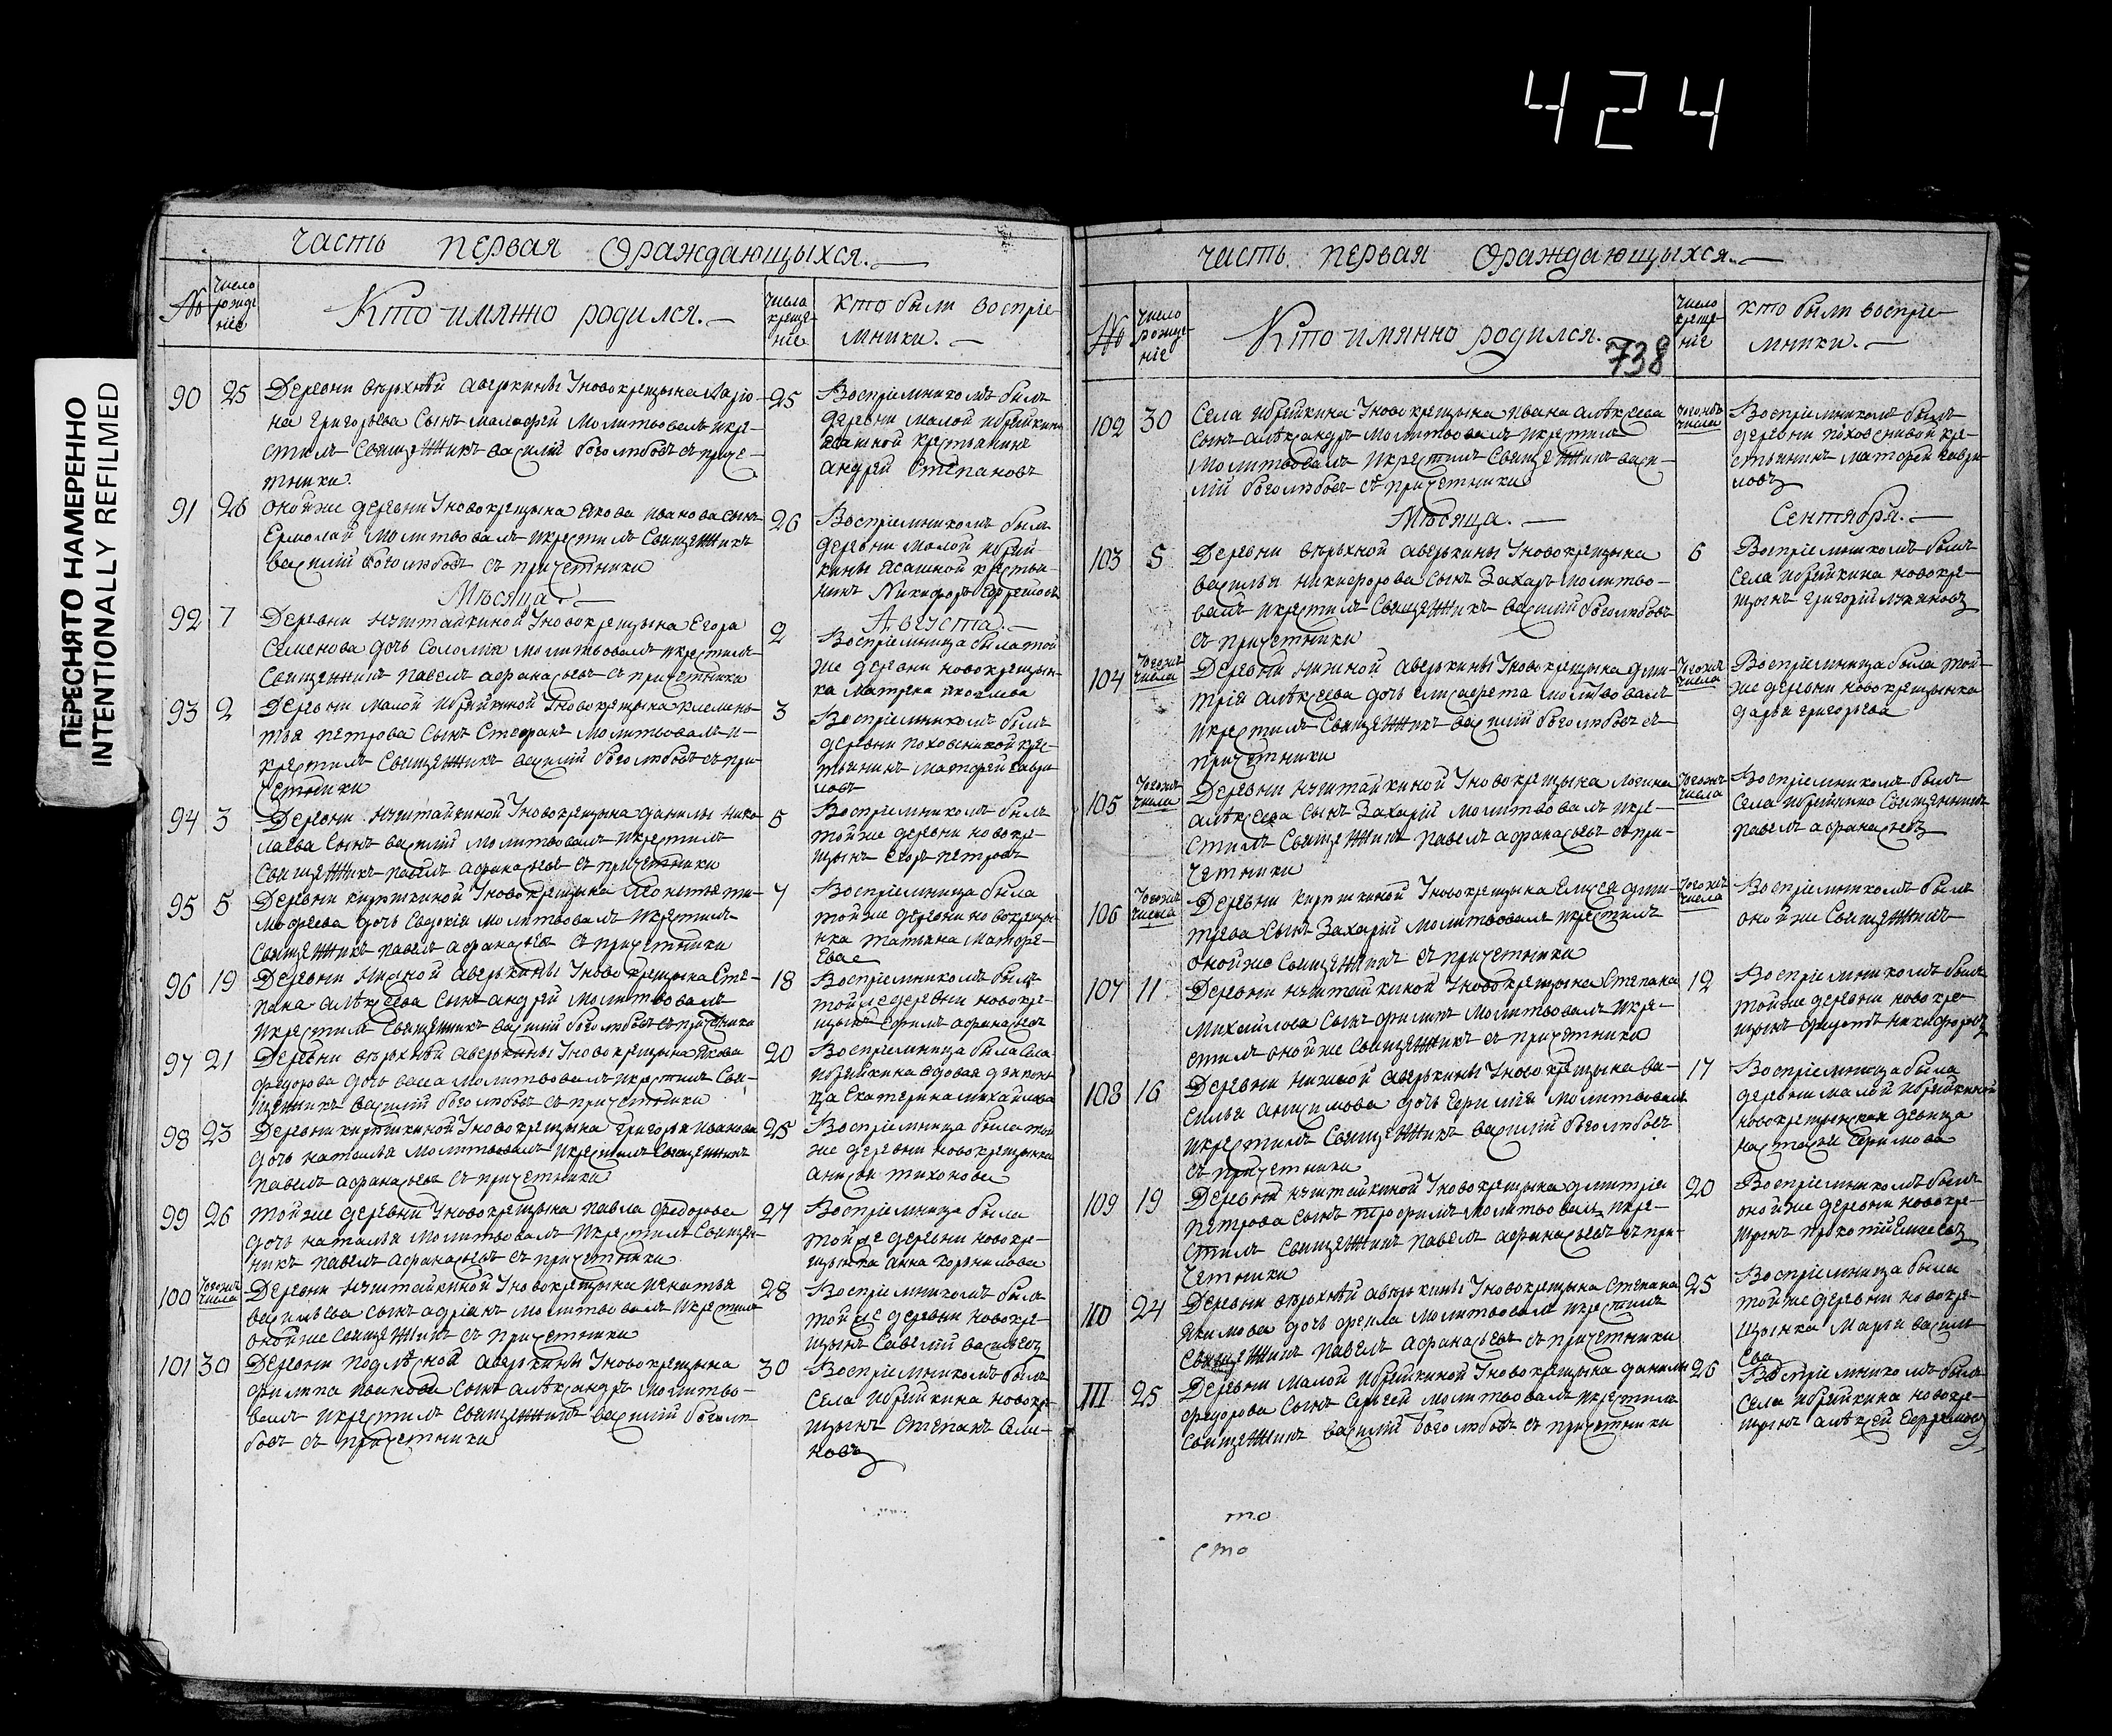 424
ПЕРЕСНЯТО НАМЕРЕННО
INTENTIONALLY REFILMED
Часть первая ораждающыхся.
№
число рожде нiе
Кто имянно родился.
числа креще нiе
кто были воспрiе
мники.
90
25
Деревни верхнѣй аверкины Уновокрещына Ларiо
на григорьева Сынъ малафей Молитвовалъ икре
стилъ Священникъ василiй боголюбовъ съприче
тники.
25
Воспрiемникомъ былъ
деревни малой ибрейкины
ясашной крестьянинъ
андрей Степановъ
91
26
оной же деревни Уновокрещына якова иванова сынъ
Ермолай молитвовалъ икрестилъ Священникъ
василiй боголюбовъ съ причетники
26
Воспрiемникомъ былъ
деревни малой ибрей
кины ясашной крестья
нинъ Никифоръ Ефремовъ
Мѣсяца
Августа.
92
7
Деревни Уновокрещына Егора
Семенова дочь Соломiя молитвовалъ икрестилъ
Священникъ павелъ афанасьевъ съ причетники
2
Воспрiемница была той
же деревни новокрещын
ка матрена яковлева
93
2
Деревни малой ибрейкиной Уновокрещына клемень
тья петрова Сынъ Стефанъ Молитвовалъ и
крестилъ Священникъ василiй боголюбовъ съ при
четники
3
Воспрiемникомъ былъ
деревни кре
стьянинъ матфей гаври
ловъ
94
3
Деревни Уновокрещына данилы нико
лаева Сынъ василiй молитвовалъ икрестилъ
Священникъ павелъ афанасьевъ съ причетники
5
Воспрiемникомъ былъ
той же деревни новокре
щынъ егоръ петровъ
95
5
Деревни киряшкиной Уновокрещына леонтья ти
мофеева дочь Евдокiя молитвовалъ икрестилъ
Священникъ павелъ афанасьевъ съ причетники
7
Воспрiемница была
той же деревни новокрещын
нка татьяна матфе
ева
96
19
Деревни нижной аверкины Уновокрещына Сте
пана алѣксеева Сынъ андрей молитвовалъ
икрестилъ Священникъ василiй боголюбовъ съпричетники
18
Воспрiемникомъ былъ
той же деревни новокре
щынъ Ефимъ афанасьевъ
97
21
Деревни верхнѣй аверкины Уновокрещына якова
федорова дочь васса молитвовалъ икрестилъ Свя
щенникъ василiй боголюбовъ съ причетники
20
Воспрiемница была села
ибрейкина вдовая дьякони
ца Екатерина михайлова
98
23
Деревни киряшкиной Уновокрещына григорья иванова
дочь наталья молитвовалъ икрестилъ Священникъ
павелъ афанасьевъ съ причетники
25
Воспрiемница была той
же деревни новокрещынка
анисья тихонова
99
26
той же деревни Уновокрещына павла федорова
дочь наталья молитвовалъ икрестилъ Священ
никъ павелъ афанасьевъ съ причетники
27
Воспрiемница была
той же деревни новокре
щынка анна корнилова
100
тогожъ числа
Деревни Уновокрещына игнатья
васильева сынъ адрiанъ молитвовалъ икрестилъ
оной же Священникъ съ причетники
28
Воспрiемникомъ былъ
той же деревни новокре
щынъ Савелiй васильевъ
101
30
Деревни подлѣсной аверкины Уновокрещына
филипа иванова сынъ алѣксандръ молитво
валъ икрестилъ Священникъ василiй боголю
бовъ съ причетники
30
Воспрiемникомъ былъ
Села ибрейкина новокре
щынъ Степанъ Семе
новъ
Часть первая ораждающыхся.
738
№
число рожде нiе
Кто имянно родился.
число креще нiе
кто были воспрiе
мники.
102
30
Села ибрейкина Уновокрещына ивана алѣксеева
Сынъ алѣксандръ молитвовалъ икрестилъ
молитвовалъ икрестилъ Священникъ васи
лiй боголюбовъ съ причетники
тогожъ числа
Воспрiемникомъ былъ
деревни кре
стьянинъ матфей гаври
ловъ
Мѣсяца.
Сентября.
103
5
Деревни верьхной аверькины Уновокрещына
василья никифорова сынъ Захаръ молитво
валъ икрестилъ Священникъ василiй боголюбовъ
съ причетники
6
Воспрiемникомъ былъ
Села ибрейкина новокре
щынъ григорiй лукияновъ
104
тогожъ числа
Деревни нижной аверькины Уновокрещына дми
трiя алѣксеева дочь елисавета молитвовалъ
икрестилъ Священникъ василiй боголюбовъ съ
причетники
тогожъ числа
Воспрiемница была той
же деревни новокрещынка
дарья григорьева
105
тогожъ числа
Деревни Уновокрещына логина
алѣксеева Сынъ Захарiй молитвовалъ икре
стилъ Священникъ павелъ афанасьевъ съ при
четники
тогожъ числа
Воспрiемникомъ былъ
Села ибрейкина Священникъ
павелъ афанасьевъ
106
тогожъ числа
Деревни киряшкиной Уновокрещына Елисея дми
трева сынъ Захарiй молитвовалъ икрестилъ
оной же Священникъ съ причетники
тогожъ числа
Воспрiемникомъ былъ
оной же Священникъ
107
11
Деревни Уновокрещына Степана
Михайлова сынъ филипъ молитвовалъ икре
стилъ оной же Священникъ съ причетники
12
Воспрiемникомъ былъ
той же деревни новокре
щынъ никифоровъ
108
16
Деревни нижной аверькины Уновокрещына ва
силья анисимова дочь Ефимiя молитвовалъ
икрестилъ Священникъ василiй боголюбовъ
съ причетники
17
Воспрiемница была
деревни малой ибрейкиной
новокрещынская девица
настасья Ефимова
109
19
Деревни Уновокрещына дмитрiя
петрова сынъ трофимъ молитвовалъ икре
стилъ Священникъ павелъ афанасьевъ съ при
четники
20
Воспрiемникомъ былъ
оной же деревни новокре
щынъ прокопiй Елисеевъ
110
24
Деревни верхнѣй аверькины Уновокрещына Степана
якимова дочь фекла молитвовалъ икрестилъ
Священникъ павелъ афанасьевъ съ причетники
25
Воспрiемница была
той же деревни новокре
щынка Марья василь
ева
111
25
Деревни малой ибрейкиной Уновокрещына данилы
федорова Сынъ Сергей молитвовалъ икрестилъ
Священникъ василiй боголюбовъ съ причетники
26
Воспрiемникомъ былъ
Села ибрейкина новокре
щынъ алѣксей Ефремовъ
то
сто